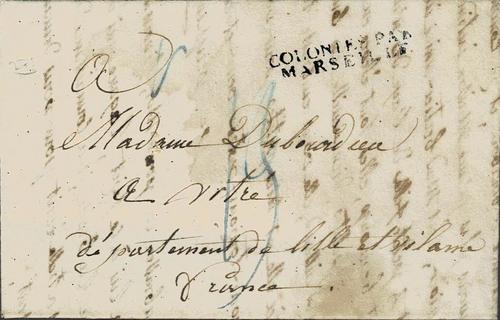 COLONIES PAR
MARSEILLE
A
Madame Dubourdieu
A vitré
département de lille et vilaine
France